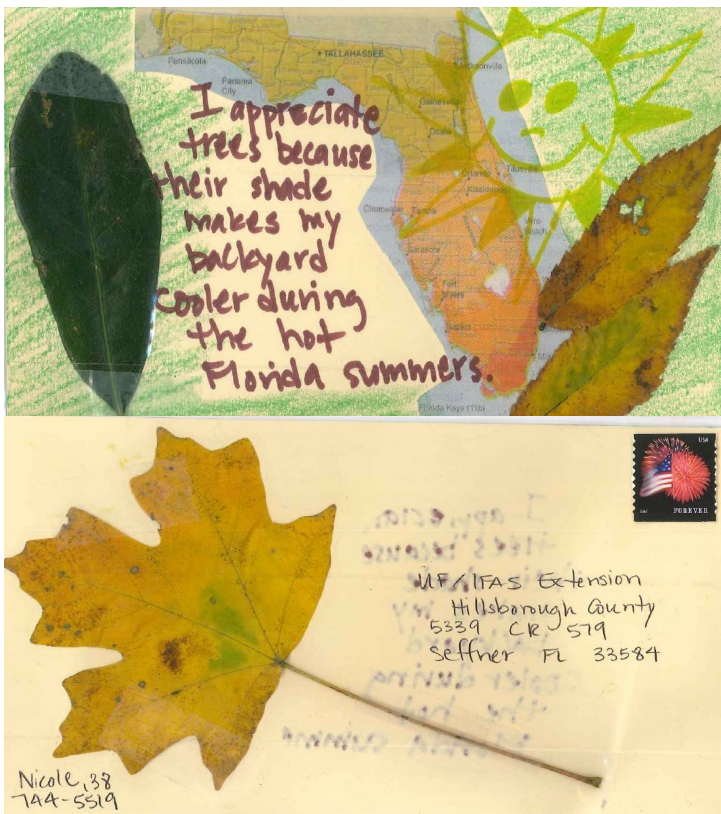 TALLAHASSEE
Pensacola
Panama
City
Jacksonville
Gainesville
Ocala
Orlando
Titusville
Kissimmee
Clearwater
Tampa
Vero
Beach
Sarasota
Fort
Myers
Naples
I appreciate
trees because
their shade
makes my
backyard
cooler during
the hot
Florida summers.
USA
FOREVER
UF/IFAS Extension
Hillsborough County
5339 CR 579
Seffner FL 33584
Nicole, 38
744-5519